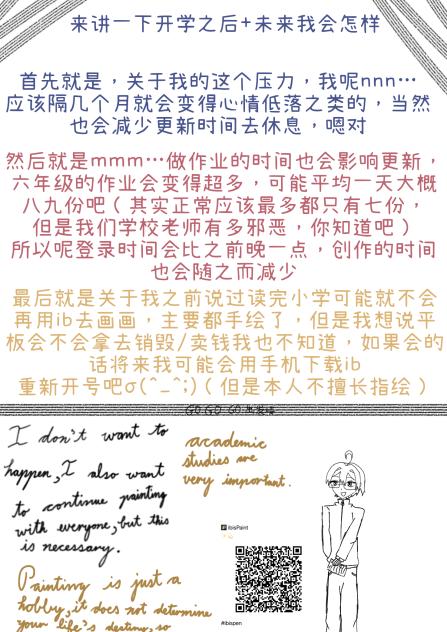 来讲一下开学之后+未来我会怎样
首先就是，关于我的这个压力，我呢nnn…
应该隔几个月就会变得心情低落之类的，当然
也会减少更新时间去休息，嗯对
然后就是mmm…做作业的时间也会影响更新，
六年级的作业会变得超多，可能平均一天大概
八九份吧（其实正常应该最多都只有七份，
但是我们学校老师有多邪恶，你知道吧）
所以呢登录时间会比之前晚一点，创作的时间
也会随之而减少
最后就是关于我之前说过读完小学可能就不会
再用ib去画画，主要都手绘了，但是我想说平
板会不会拿去销毁/卖钱我也不知道，如果会的
话将来我可能会用手机下载ib
重新开号吧σ(^_^;)（但是本人不擅长指绘）
GO GO GO
I don't want to
happen, I also want
to continue painting
with everyone, but this
is necessary.
academic
studies are
very important.
Painting is just a
hobby, it does not determine
your life's destiny, so
ibisPaint
#ibispen